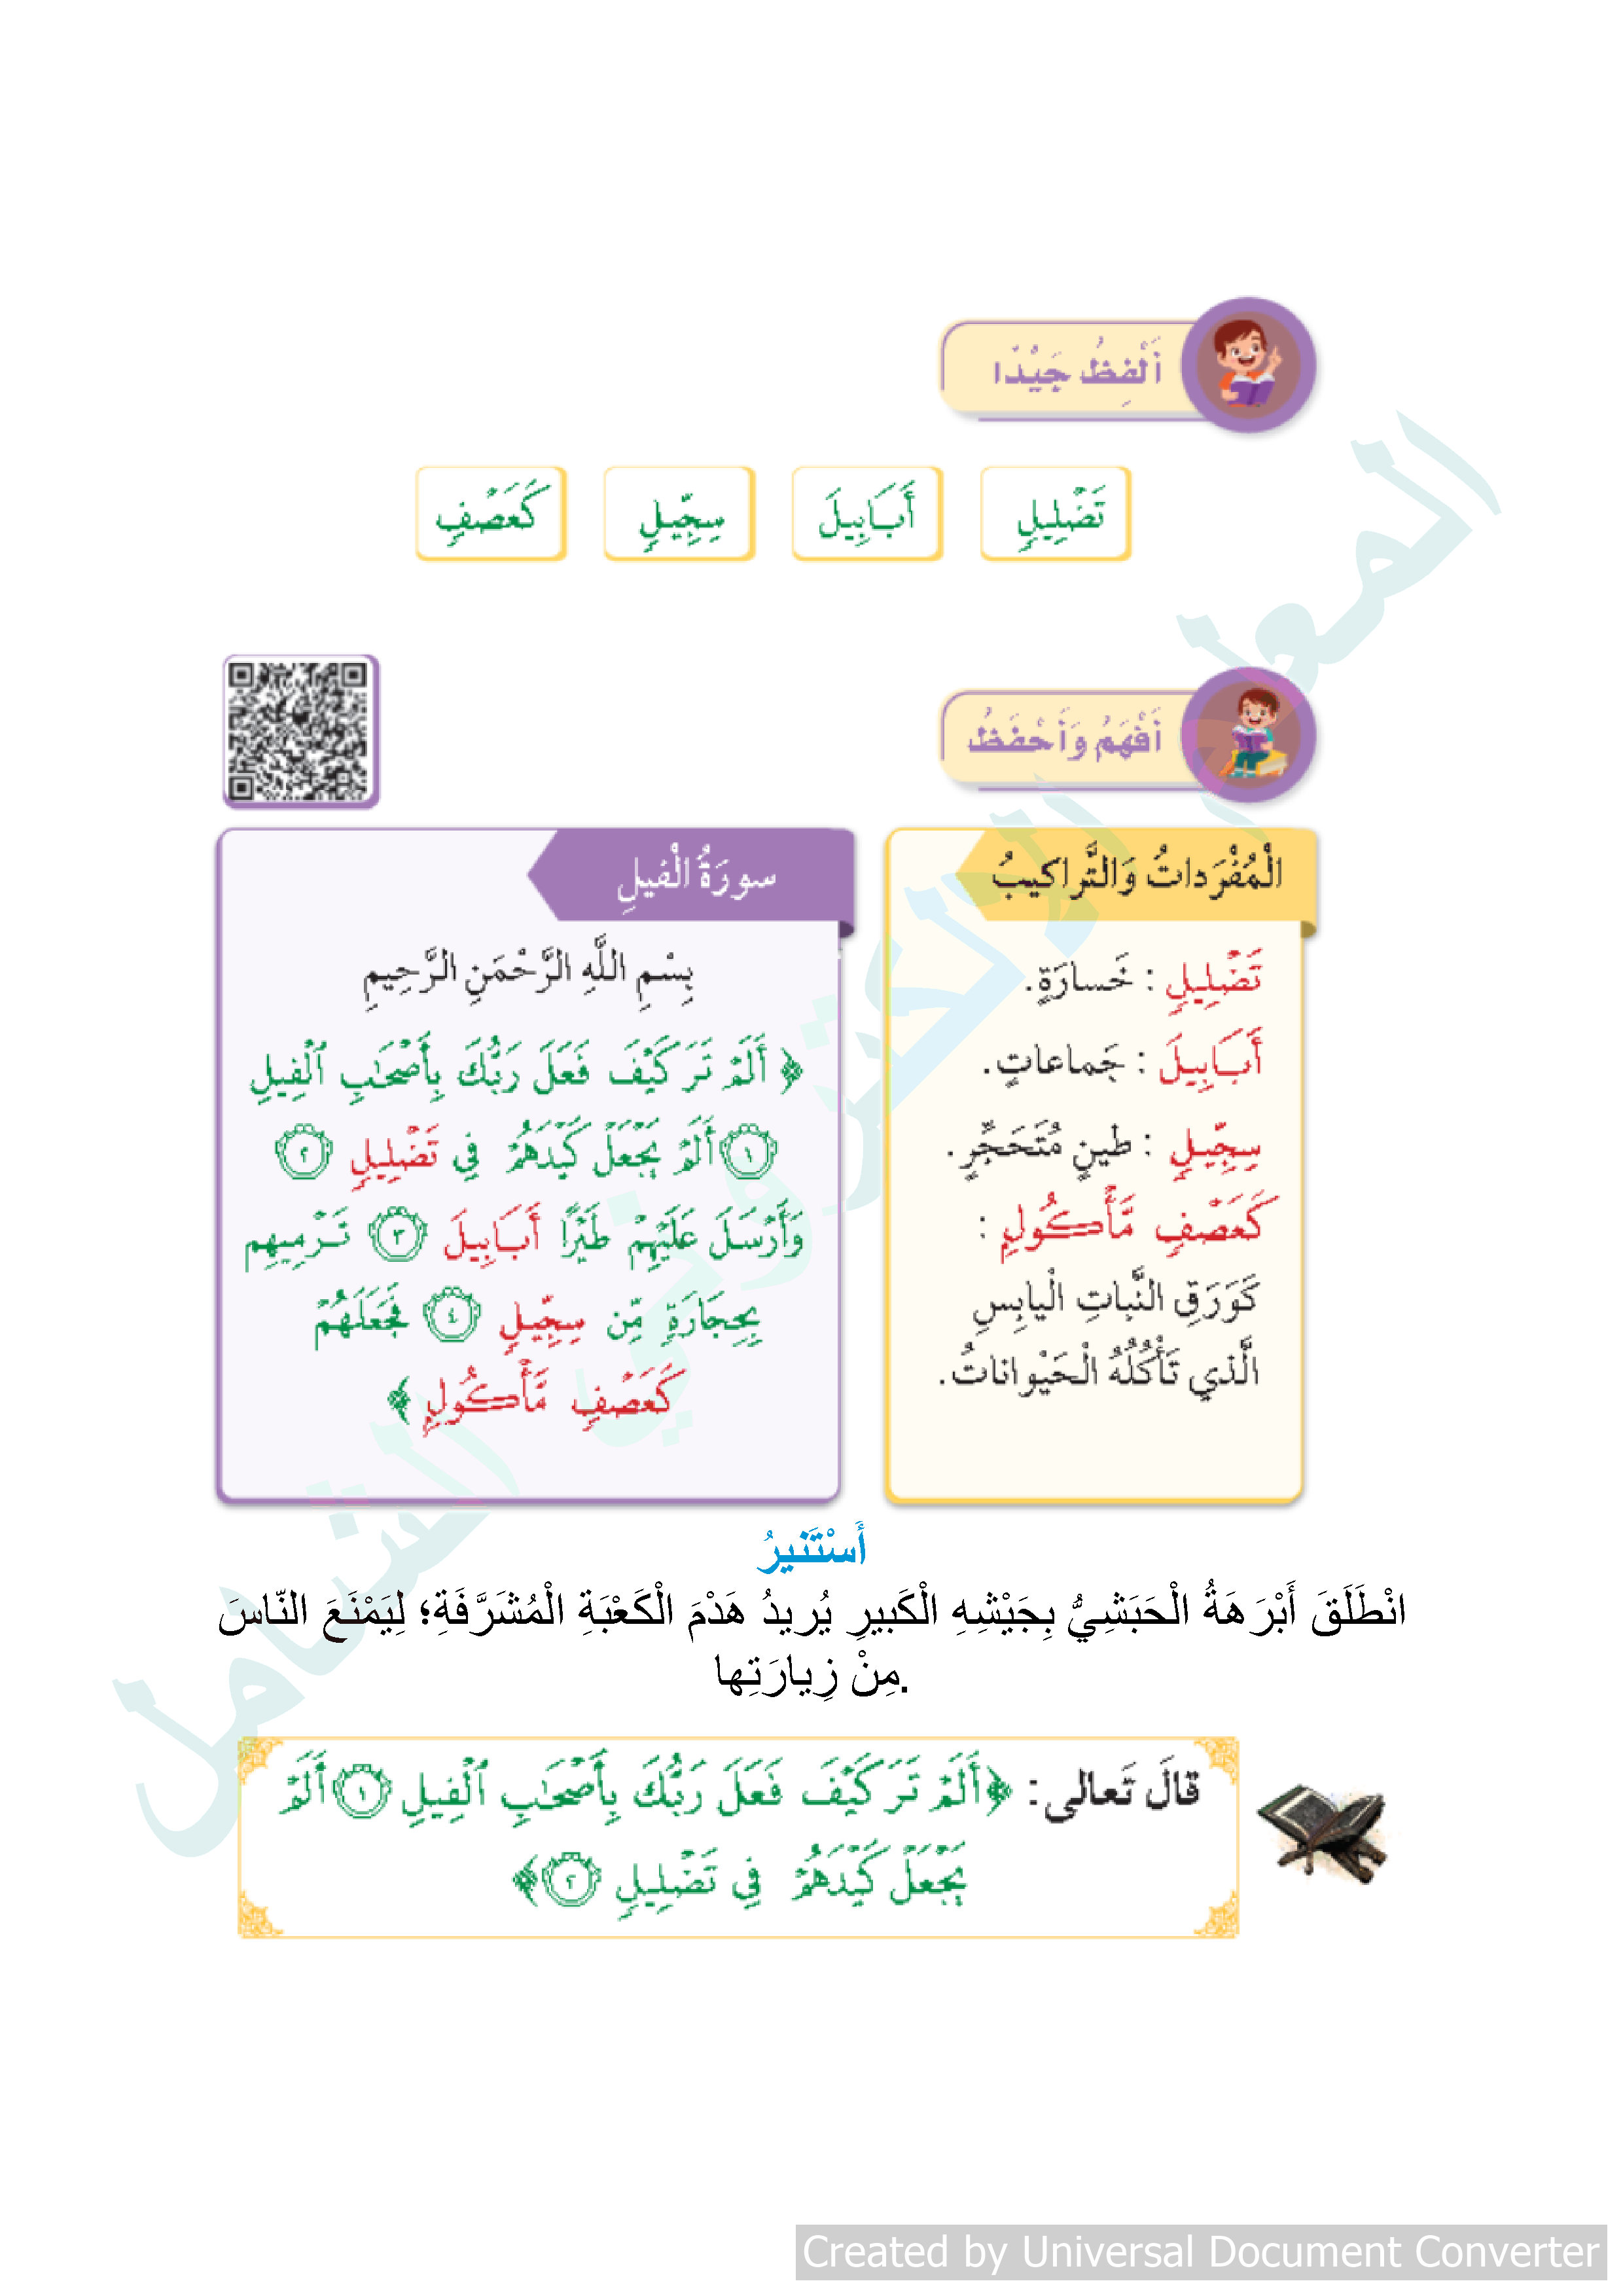 أَلْفِظُ جَيِّدًا
تَضْلِيلٍ أَبَابِيلَ سِجِّيلٍ كَعَصْفٍ
أَفْهَمُ وَأَحْفَظُ
الْمُفْرَداتُ وَالتَّراكيبُ
تَضْلِيلٍ : خَسارَةٍ.
أَبَابِيلَ : جَماعاتٍ.
سِجِّيلٍ : طينٍ مُتَحَجِّرٍ.
كَعَصْفٍ مَّأْكُولٍ :
كَوَرَقِ النَّباتِ الْيابِسِ
الَّذي تَأْكُلُهُ الْحَيْواناتُ.
سورَةُ الْفيلِ
بِسْمِ اللَّهِ الرَّحْمَنِ الرَّحِيمِ
﴿ أَلَمْ تَرَ كَيْفَ فَعَلَ رَبُّكَ بِأَصْحَٰبِ ٱلْفِيلِ
١ أَلَمْ يَجْعَلْ كَيْدَهُمْ فِي تَضْلِيلٍ ٢
وَأَرْسَلَ عَلَيْهِمْ طَيْرًا أَبَابِيلَ ٣ تَرْمِيهِم
بِحِجَارَةٍ مِّن سِجِّيلٍ ٤ فَجَعَلَهُمْ
كَعَصْفٍ مَّأْكُولٍ ﴾
أَسْتَنيرُ
انْطَلَقَ أَبْرَهَةُ الْحَبَشِيُّ بِجَيْشِهِ الْكَبيرِ يُريدُ هَدْمَ الْكَعْبَةِ الْمُشَرَّفَةِ؛ لِيَمْنَعَ النّاسَ
مِنْ زِيارَتِها.
قالَ تَعالى: ﴿أَلَمْ تَرَ كَيْفَ فَعَلَ رَبُّكَ بِأَصْحَٰبِ ٱلْفِيلِ ١ أَلَمْ
يَجْعَلْ كَيْدَهُمْ فِي تَضْلِيلٍ ٢﴾
المعلم الإلكتروني الشامل
Created by Universal Document Converter